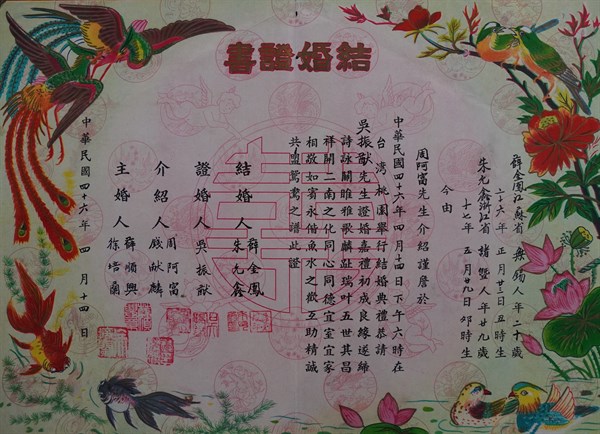 結婚證書
薛金鳳江蘇省無錫人年二十歲
二十六年正月廿三日丑時生
朱允鑫浙江省諸暨人年廿九歲
十七年五月廿九日卯時生
今由
周阿富先生介紹謹詹於
中華民國四十六年四月十四日下午六時在
台灣桃園舉行結婚典禮恭請
吳振猷先生證婚嘉禮初成良緣遂締
詩詠關雎雅歌麟趾瑞叶五世其昌
祥開二南之化同心同德宜室宜家
相敬如賓永偕魚水之歡互助精誠
共盟鴛鴦之譜此證
結婚人 薛金鳳
朱允鑫
證婚人 吳振猷
介紹人 周阿富
戚献麟
主婚人 薛順興
徐培蘭
中華民國四十六年四月十四日